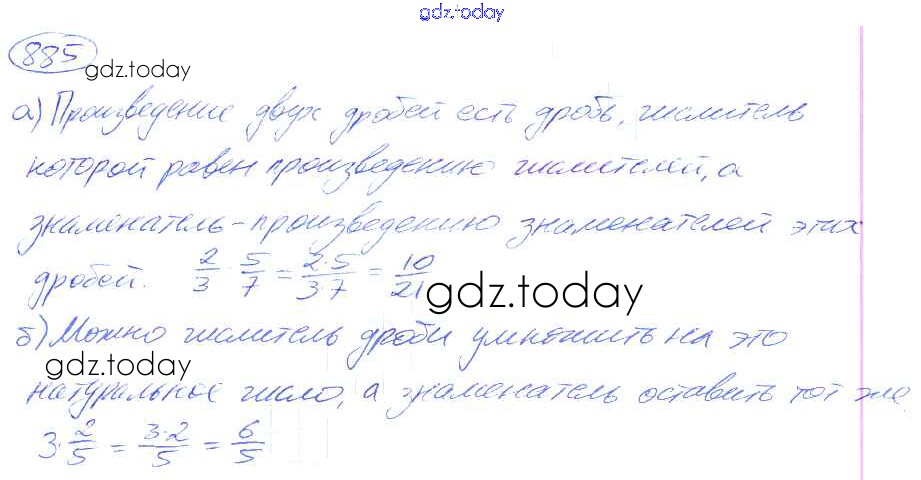 gdz.today
885
gdz.today
а) Произведение двух дробей есть дробь, числитель
которой равен произведению числителей, а
знаменатель - произведению знаменателей этих
дробей. 2/3 · 5/7 = 2·5/3·7 = 10/21
gdz.today
б) Можно числитель дроби умножить на это
gdz.today
натуральное число, а знаменатель оставить тот же
3 · 2/5 = 3·2/5 = 6/5